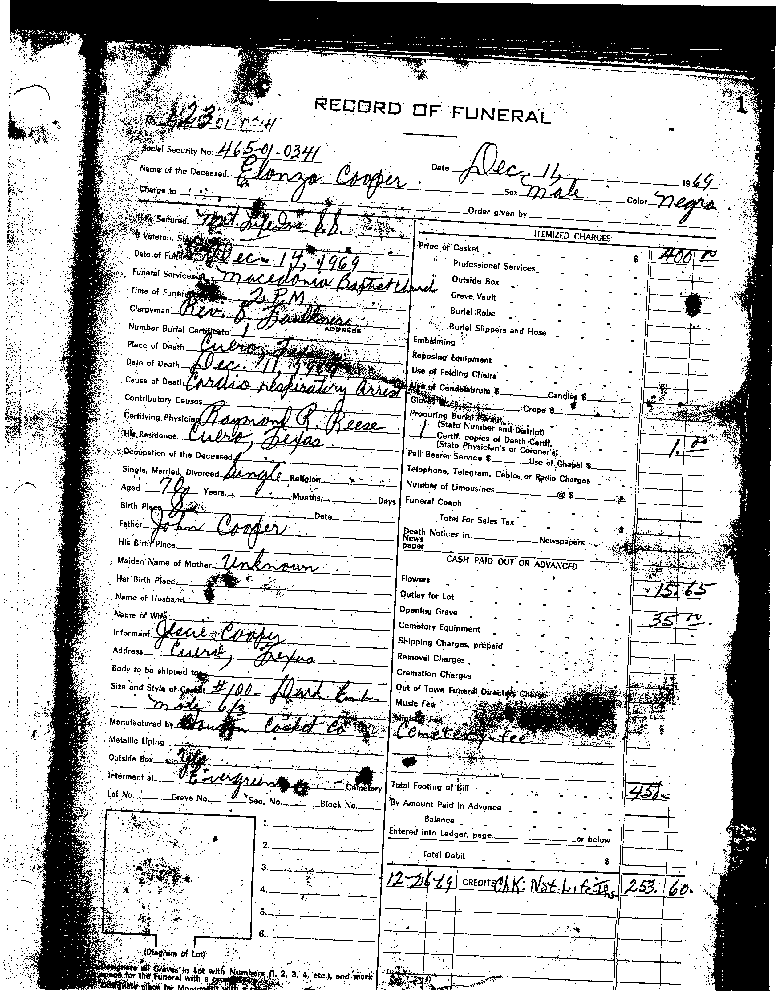 1
RECORD OF FUNERAL
Social Security No. 465-01-0341
Name of the Deceased. Elonzo Cooper Date Dec. 11, 1969
Charge to Sex Male Color Negro
Order given by
How Secured. Nat Life Ins
Date of Funeral Dec 14, 1969
Funeral Services Macedonia Baptist Church
Time of Funeral 2 P.M.
Clergyman Rev. ADDRESS
Number Burial Certificate 1
Place of Death Cuero, Texas
Date of Death Dec. 11, 1969
Cause of Death Cardio respiratory Arrest
Contributory Causes
Certifying Physician Raymond R. Reese
His Residence. Cuero, Texas
Occupation of the Deceased
Single, Married, Divorced Single Religion
Aged 70 Years Months Days
Birth Place Date
Father John Cooper
His Birth Place
Maiden Name of Mother Unknown
Her Birth Place
Name of Husband
Name of Wife
Informant Jessie Cooper
Address Cuero, Texas
Body to be shipped to
Size and Style of Casket #100- Dark
Mdse 6/3
Manufactured by Houston Casket Co
Metallic Lining
Outside Box
Interment at Evergreen Cemetery
Lot No. Grave No. Sec. No. Block No.
1.
2.
3.
4.
5.
6.
(Diagram of Lot)
Designate all Graves in Lot with Numbers (1, 2, 3, 4, etc.), and mark
ITEMIZED CHARGES
Price of Casket $ 400.00
Professional Services
Outside Box
Grave Vault
Burial Robe
Burial Slippers and Hose
Embalming
Reposing Equipment
Use of Folding Chairs
Use of Candelabrum $ Candles $
Gloves Crepe $
Procuring Burial Permit
(State Number and District)
1 Certif. copies of Death Certf. 1.00
(State Physician's or Coroner's)
Pall Bearer Service $ Use of Chapel $
Telephone, Telegram, Cables or Radio Charges
Number of Limousines @ $
Funeral Coach
Total For Sales Tax $
Death Notices in Newspapers
News
paper
CASH PAID OUT OR ADVANCED
Flowers 15.65
Outlay for Lot
Opening Grave 35.00
Cemetery Equipment
Shipping Charges, prepaid
Removal Charges
Cremation Charges
Out of Town Funeral Directors Charge
Music Fee
Cemetery fee
Total Footing of Bill 451
By Amount Paid in Advance
Balance
Entered into Ledger, page or below
Total Debit $
12-26-69 CREDITS Chk. Nat. Life Ins 253.60